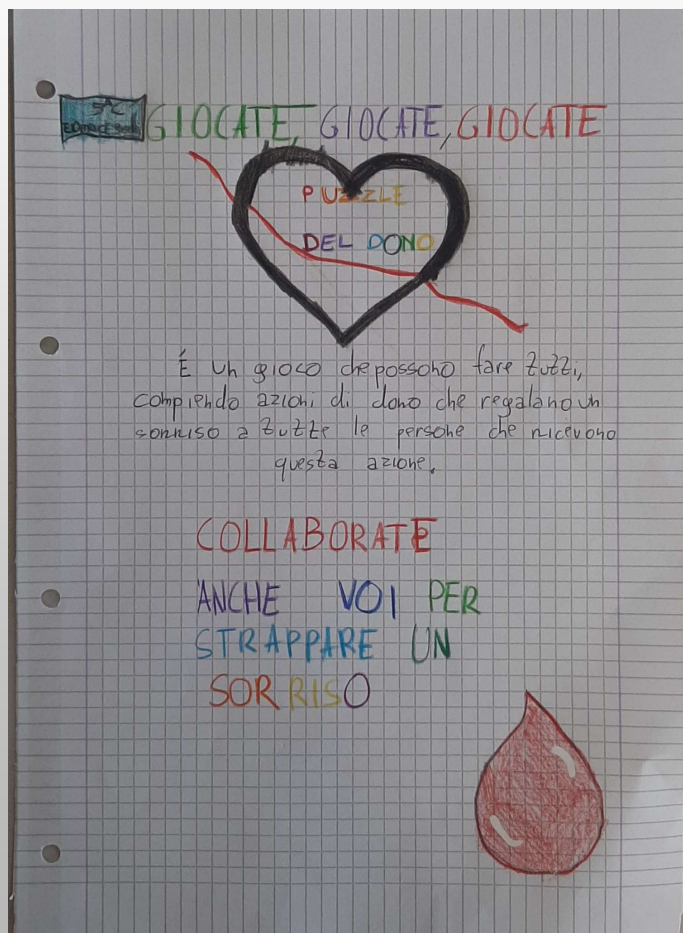 5ªC
GIOCATE, GIOCATE, GIOCATE
PUZZLE
DEL DONO
É un gioco che possono fare tutti,
compiendo azioni di dono che regalano un
sorriso a tutte le persone che ricevono
questa azione.
COLLABORATE
ANCHE VOI PER
STRAPPARE UN
SORRISO